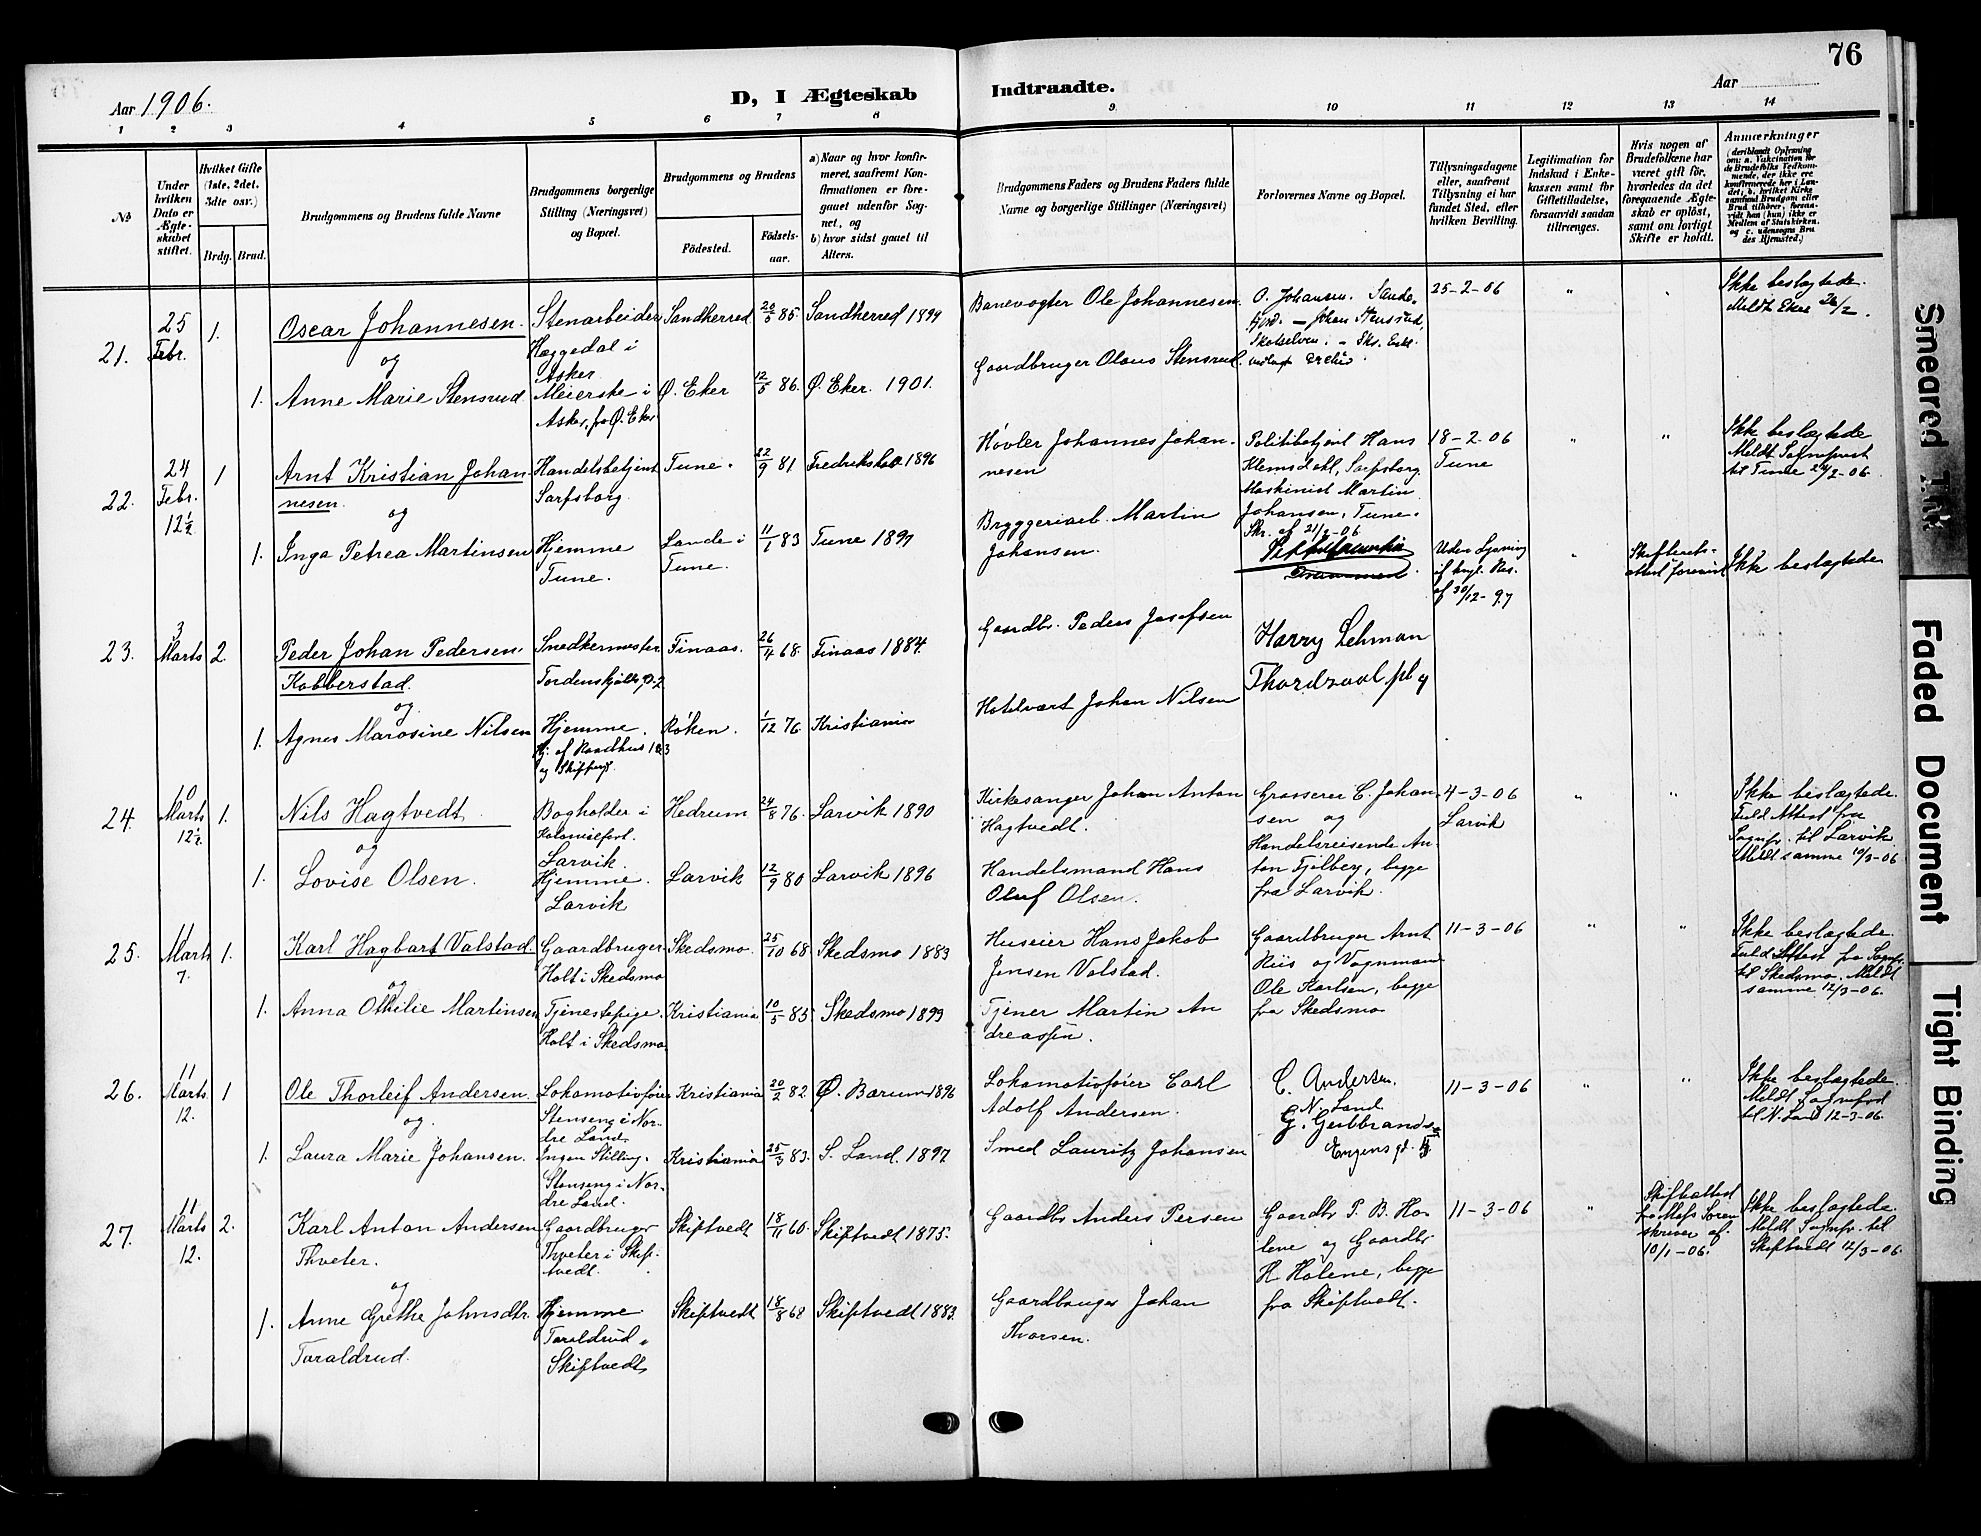 76
Aar 1906.
D, I Ægteskab Indtraadte.
Aar
1 2 3 4 5 6 7 8 9 10 11 12 13 14
№
Under hvilken Dato er Ægteskabet stiftet.
Hvilket Gifte (1ste, 2det, 3die osv.)
Brdg. Brud.
Brudgommens og Brudens fulde Navne
Brudgommens borgerlige Stilling (Næringsvei) og Bopæl.
Brudgommens og Brudens
Fødested.
Fødselsaar.
a) Naar og hvor konfirmeret, saafremt Konfirmationen er foregaaet udenfor Sognet, og
b) hvor sidst gaaet til Alters.
Brudgommens Faders og Brudens Faders fulde Navne og borgerlige Stillinger (Næringsvei)
Forlovernes Navne og Bopæl.
Tillysningsdagene eller, saafremt Tillysning ei har fundet Sted, efter hvilken Bevilling.
Legitimation for Indskud i Enkekassen samt for Giftetilladelse, forsaavidt saadan tiltrænges.
Hvis nogen af Brudefolkene har været gift før, hvorledes da det foregaaende Ægteskab er opløst, samt om lovligt Skifte er holdt.
Anmærkninger
(deriblandt Oplysning om: a. Vakcination for de Brudefolks Vedkommende, der ikke ere konfirmerede her i Landet; b. hvilket Kirkesamfund Brudgom eller Brud tilhører, forsaavidt han (hun) ikke er Medlem af Statskirken, og c. udensogns Brudes Hjemsted.)
21. 25 Febr. 1. Oscar Johannesen. Stenarbeider Sandherred 20/5 85 Sandherred 1899
Heggedal i Asker
og
1. Anne Marie Stensrud Meierske i Ø. Eker 12/5 86. Ø. Eker. 1901.
Asker, fra Ø. Eker
Banevogter Ole Johannesen. O. Johansen. Sande- 25-2-06 " " Ikke beslægtede.
fjord. – Johan Stensrud, Meldt Eker 26/2.
Skotselven.
Gaardbruger Olaus Stensrud.
22. 24 Febr. 12½ 1 Arnt Kristian Johan- Handelsbetjent Tune. 22/9 81 Fredrikstad 1896
nesen. Sarpsborg.
og
1. Inga Petrea Martinsen Hjemme Lande i 11/1 83 Tune 1897
Tune. Tune.
Høvler Johannes Johan- Politibetjent Hans 18-2-06 " " Ikke beslægtede
nesen Klemsdahl, Sarpsborg Tune Meldt Sognepræst
Maskinist Martin til Tune 24/2-06.
Bryggeriarb. Martin Johansen, Tune.
Johansen. Skr. af 21/2-06
23. 3 Marts 2. Peder Johan Pedersen Snedkermester Finaas. 26/4 68. Finaas 1884.
Kobberstad. Tordenskjolds p. 2
og
1. Agnes Marosine Nilsen Hjemme. Røken. 1/12 76. Kristiania
Hj. af Raadhus
og Skipperg.
Gaardbr. Peder Josefsen Harry Lehman Uden Lysning " Skifterets- Ikke beslægtede
Thordvaal pl 9 if. kgl. Res. attest forevist
af 30/12-97
Hotelvært Johan Nilsen
24. 10 Marts 12½ 1. Nils Hagtvedt. Bogholder i Hedrum 24/8 76. Larvik 1890
Kolonialforl.
og Larvik.
1. Lovise Olsen. Hjemme. Larvik 12/9 80 Larvik 1896
Larvik
Kirkesanger Johan Anton Grosserer C. Johan- 4-3-06 " " Ikke beslægtede.
Hagtvedt. sen og Larvik Fuld Attest fra
Handelsreisende An- Sognepr. til Larvik
Handelsmand Hans ton Fjelberg, begge Meldt samme 10/3-06
Oluf Olsen. fra Larvik.
25. 11 Marts 7. 1. Karl Hagbart Valstad Gaardbruger Skedsmo. 25/10 68 Skedsmo 1883
Holt i Skedsmo
og
1. Anna Othilie Martinsen Tjenestepige. Kristiania 10/5 85 Skedsmo 1899
Holt i Skedsmo.
Huseier Hans Jakob Gaardbruger Arnt 11-3-06 " " Ikke beslægtede.
Jensen Valstad. Riis og Vognmand Fuld Attest fra Sognepr.
Ole Karlsen, begge til Skedsmo. Meldt
Tjener Martin An- fra Skedsmo samme 12/3-06.
dreassen.
26. 11 Marts. 12. 1 Ole Thorleif Andersen. Lokomotivfører Kristiania 20/2 82 Ø. Bærum 1896
Stenseng i Nor-
og dre Land
1. Laura Marie Johansen. Ingen Stilling. Kristiania 25/3 83. S. Land. 1897
Stenseng i Nor-
dre Land.
Lokomotivfører Carl C. Andersen. 11-3-06 " " Ikke beslægtede.
Adolf Andersen. N. Land. Meldt Sognepræst
G. Gulbrandsen til N. Land 12-3-06
Smed Lauritz Johansen
27. 11 Marts 12. 2. Karl Anton Andersen Gaardbruger Skiptvedt 18/11 60. Skiptvedt 1875.
Thveter. Thveter i Skip-
tvedt.
og
1. Anne Grethe Johnsdtr. Hjemme Skiptvedt 18/8 68 Skiptvedt 1883.
Taraldrud. Taraldrud i
Skiptvedt
Gaardbr Anders Persen Gaardbr P. B. Ho- 11-3-06 " Skifteattest Ikke beslægtede.
lene og Gaardbr fra Moss Soren- Meldt Sognepr. til
H Holene, begge skriver af Skiptvedt 12/3-06.
Gaardbruger Johan fra Skiptvedt. 10/1-06.
Thorsen.
Smeared Ink
Faded Document
Tight Binding